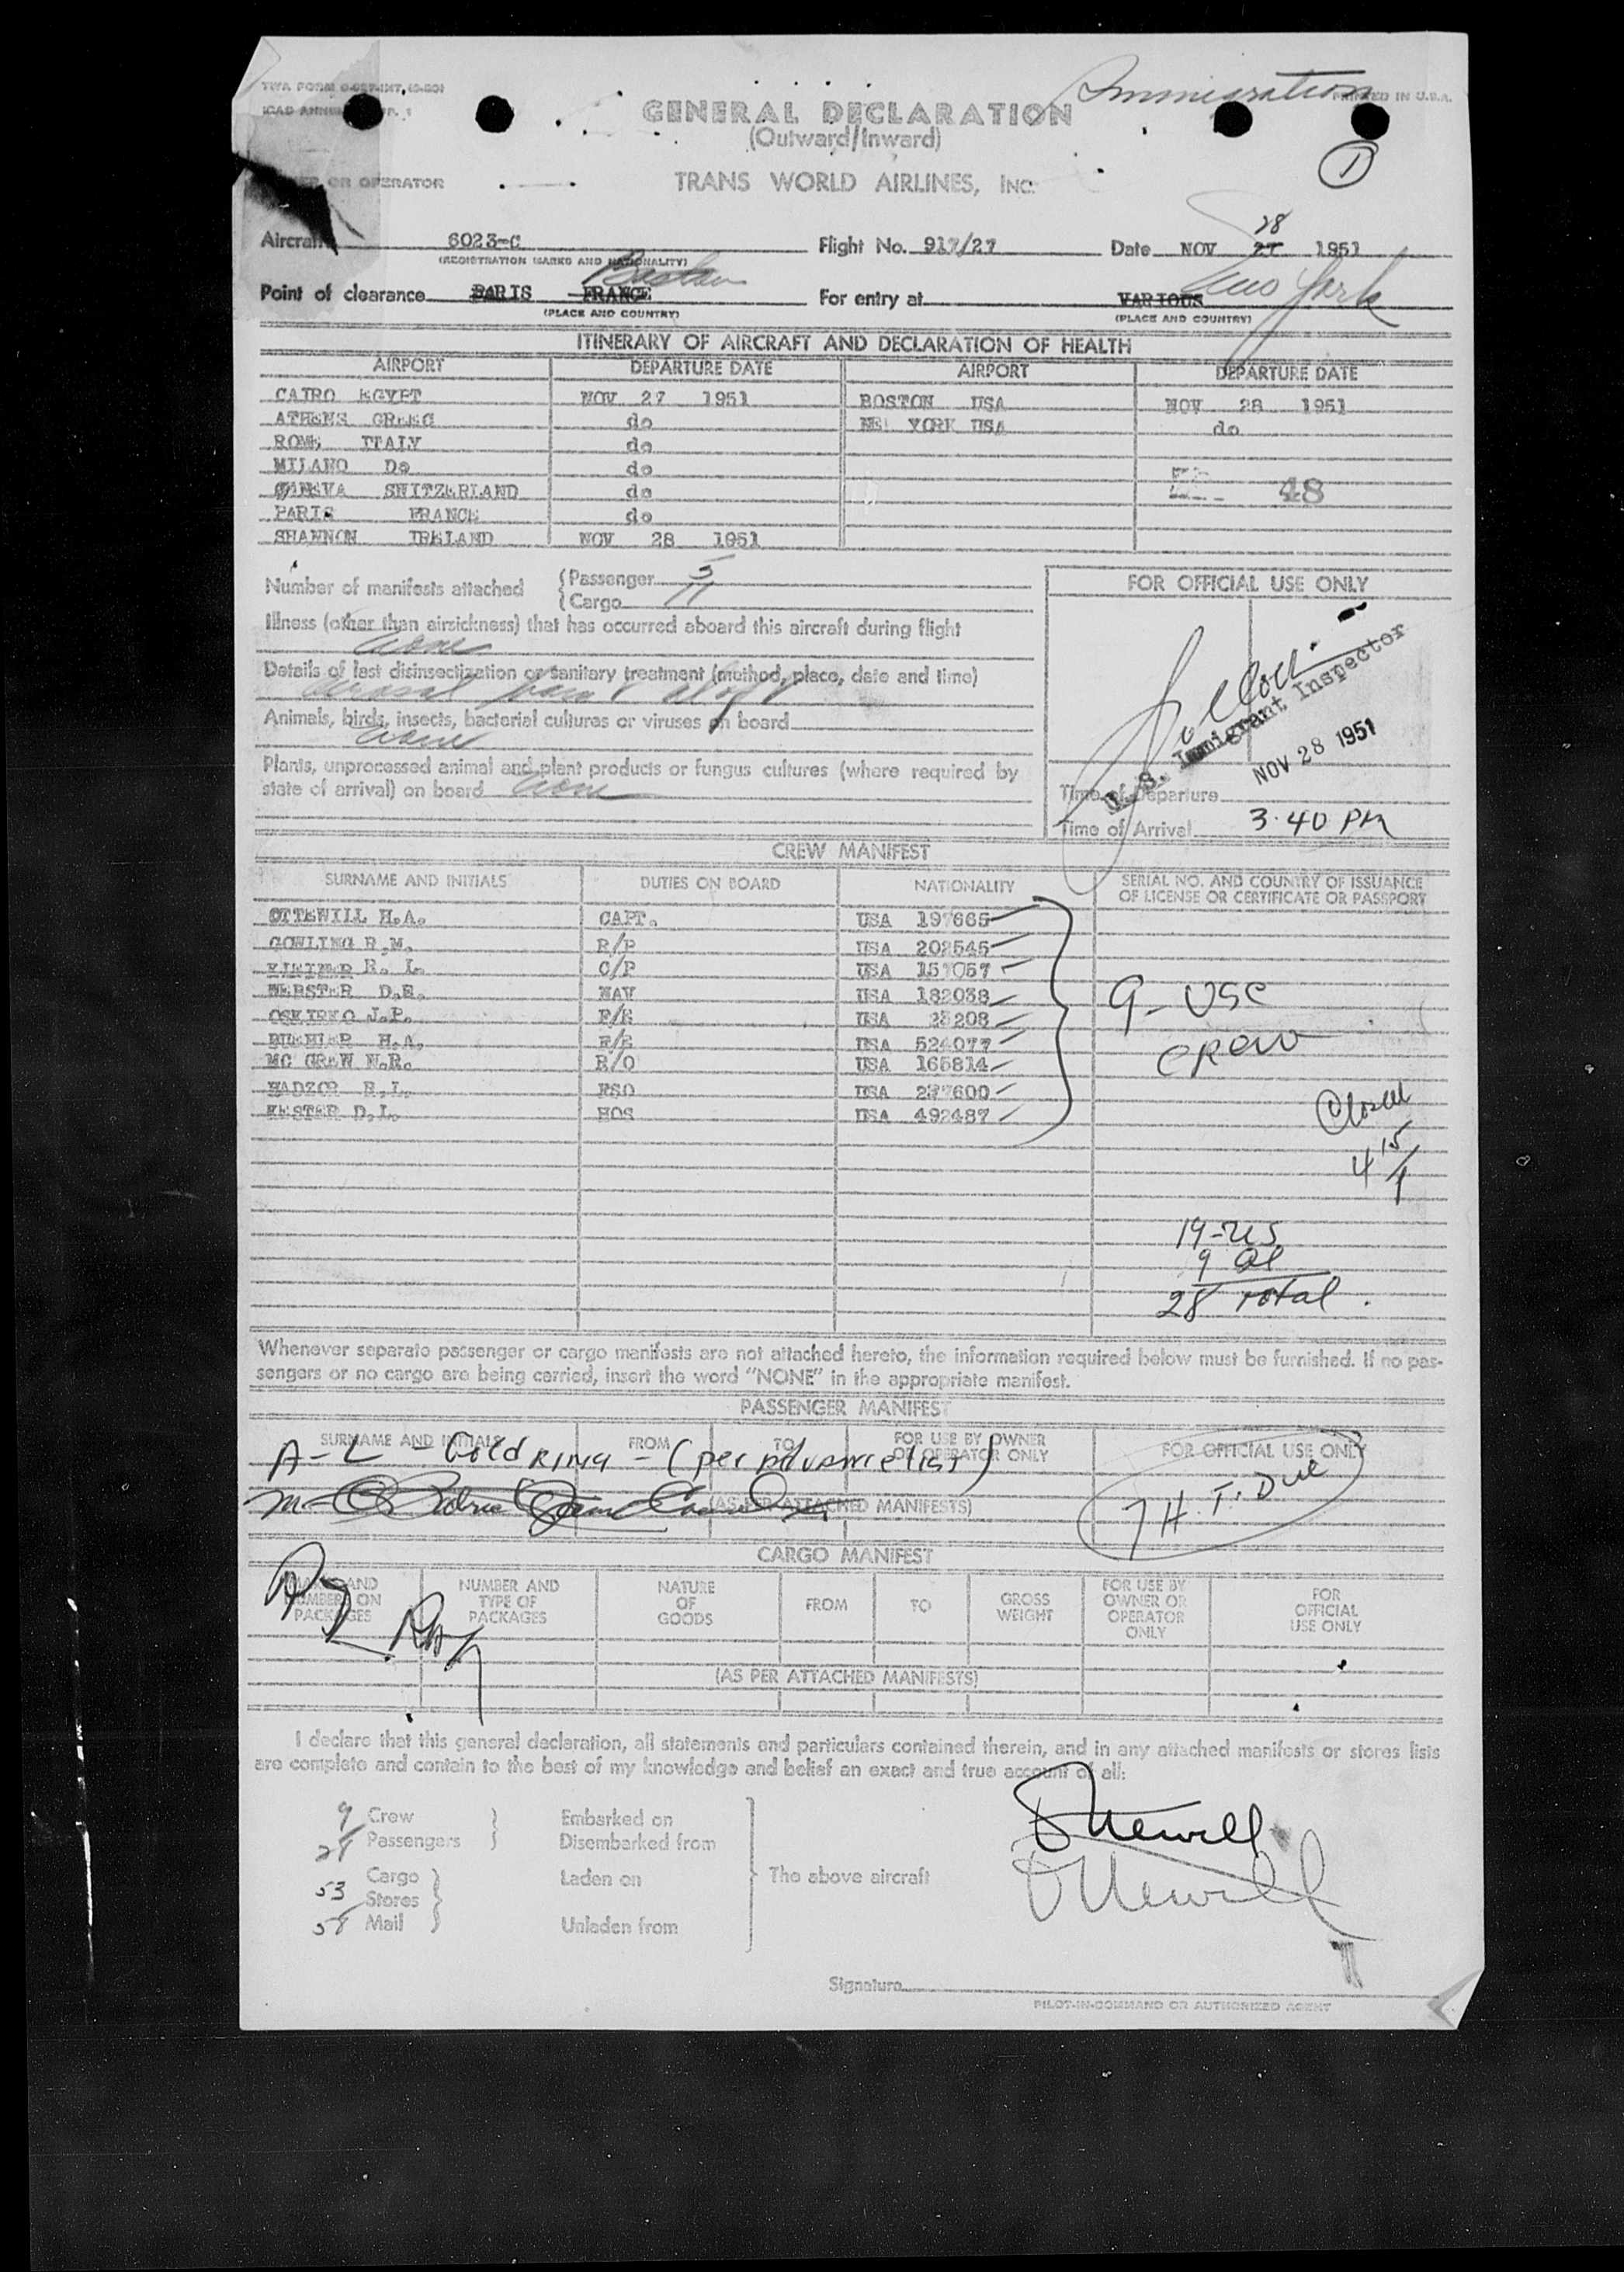 Immigration
PRINTED IN U.S.A.
GENERAL DECLARATION
(Outward/Inward)
1
OR OPERATOR
TRANS WORLD AIRLINES, INC.
28
Aircraft 6023-C Flight No. 917/27 Date NOV 27 1951
(REGISTRATION MARKS AND NATIONALITY)
Boston New York
Point of clearance PARIS FRANCE For entry at VARIOUS
(PLACE AND COUNTRY) (PLACE AND COUNTRY)
ITINERARY OF AIRCRAFT AND DECLARATION OF HEALTH
AIRPORT DEPARTURE DATE AIRPORT DEPARTURE DATE
CAIRO EGYPT NOV 27 1951 BOSTON USA NOV 28 1951
ATHENS GREEC do NEW YORK USA do
ROME ITALY do
MILANO Do do
GENEVA SWITZERLAND do 48
PARIS FRANCE do
SHANNON IRELAND NOV 28 1951
Number of manifests attached (Passenger 5
(Cargo 11
FOR OFFICIAL USE ONLY
Illness (other than airsickness) that has occurred aboard this aircraft during flight
None
Details of last disinsectization or sanitary treatment (method, place, date and time)
Animals, birds, insects, bacterial cultures or viruses on board
None
Plants, unprocessed animal and plant products or fungus cultures (where required by
state of arrival) on board None
U.S. Immigrant Inspector
NOV 28 1951
Time of Departure
Time of Arrival 3.40 PM
CREW MANIFEST
SURNAME AND INITIALS DUTIES ON BOARD NATIONALITY SERIAL NO. AND COUNTRY OF ISSUANCE
OF LICENSE OR CERTIFICATE OR PASSPORT
OTTEWILL H.A. CAPT. USA 197665
GOWLING R.M. R/P USA 202545
R. L. C/P USA 157057
WEBSTER D.E. NAV USA 182038
OSKIRKO J.P. F/E USA
BUEHLER H.A. F/E USA 524077
MC GREW N.R. R/O USA 165814
HADZOR R.L. FSO USA 237600
KESTER D.L. HOS USA 492487
9 - USC
CREW
Closed
4 15/1
19-US
9 Al
28 Total.
Whenever separate passenger or cargo manifests are not attached hereto, the information required below must be furnished. If no pas-
sengers or no cargo are being carried, insert the word "NONE" in the appropriate manifest.
PASSENGER MANIFEST
SURNAME AND INITIALS FROM TO FOR USE BY OWNER
OR OPERATOR ONLY FOR OFFICIAL USE ONLY
A-L - Goldring - (per advance list)
(AS PER ATTACHED MANIFESTS)
7 H.T. Due
CARGO MANIFEST
MARKS AND
NUMBERS ON
PACKAGES NUMBER AND
TYPE OF
PACKAGES NATURE
OF
GOODS FROM TO GROSS
WEIGHT FOR USE BY
OWNER OR
OPERATOR
ONLY FOR
OFFICIAL
USE ONLY
(AS PER ATTACHED MANIFESTS)
I declare that this general declaration, all statements and particulars contained therein, and in any attached manifests or stores lists
are complete and contain to the best of my knowledge and belief an exact and true account of all:
9 Crew Embarked on
28 Passengers Disembarked from
53 Cargo Laden on The above aircraft
Stores
58 Mail Unladen from
Ottewill
Ottewill
Signature
PILOT-IN-COMMAND OR AUTHORIZED AGENT